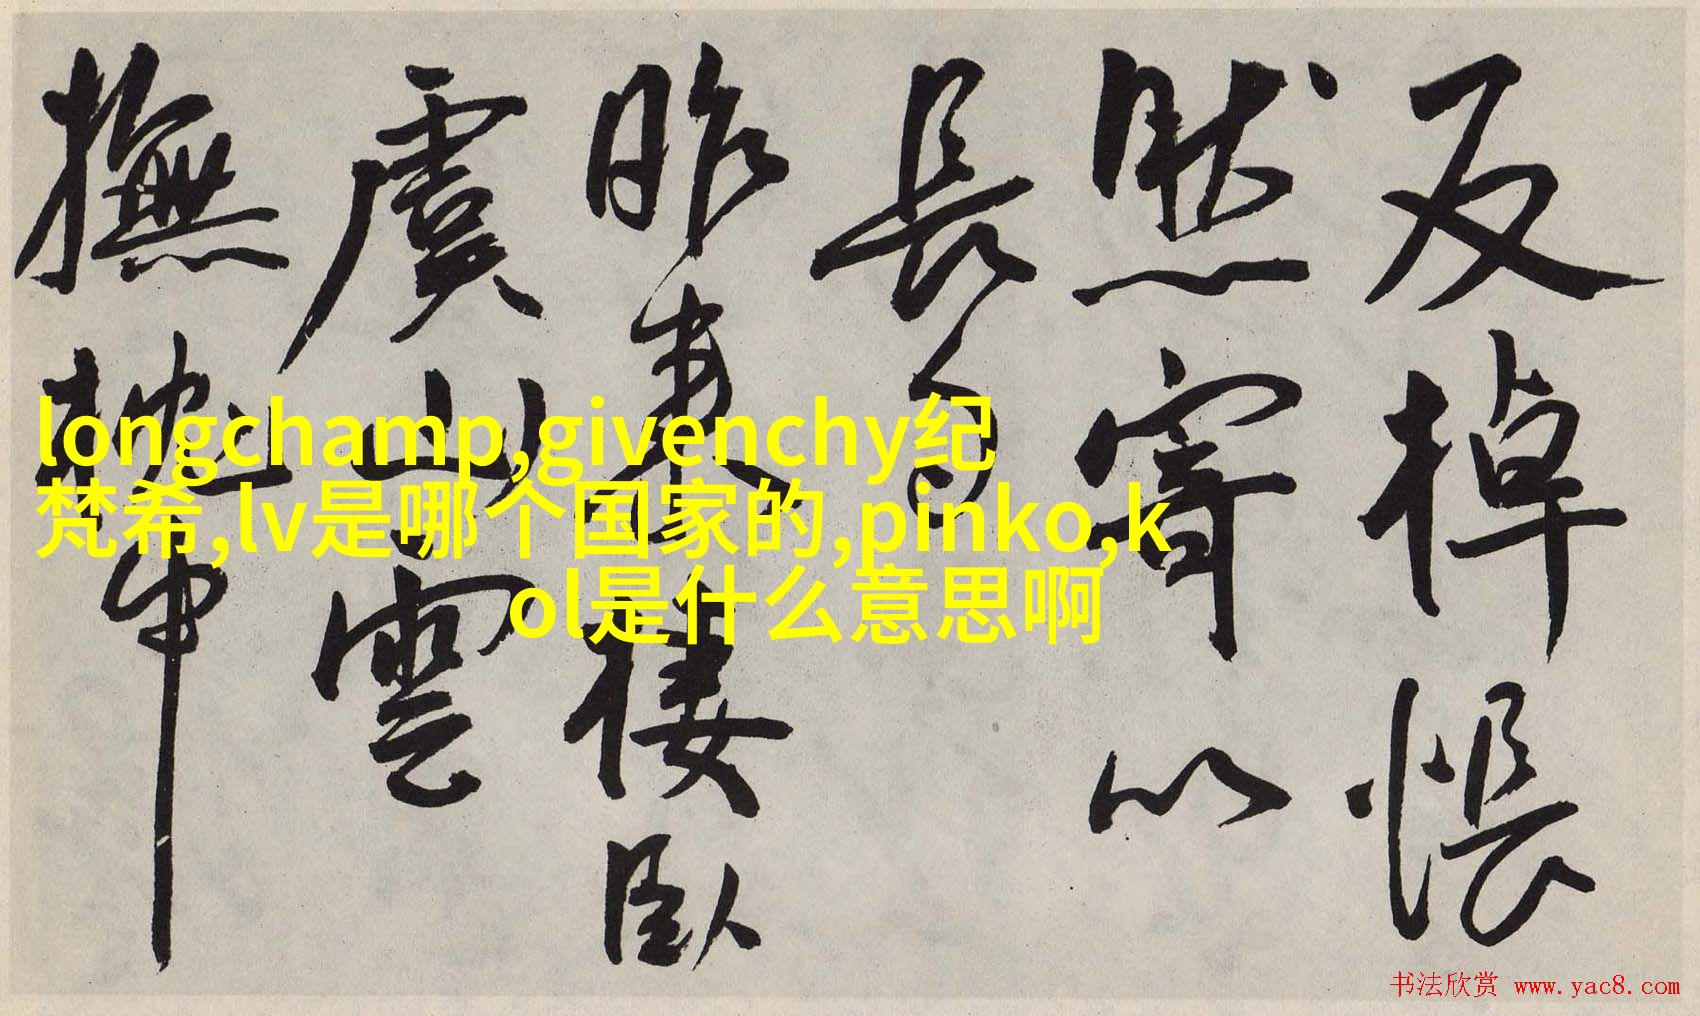 反棹悵
然寄以
長句
昨來樓臥
虞山雲
撫
longchamp,givenchy纪
梵希,lv是哪个国家的,pinko,k
ol是什么意思啊
书法欣赏 www.yac8.com